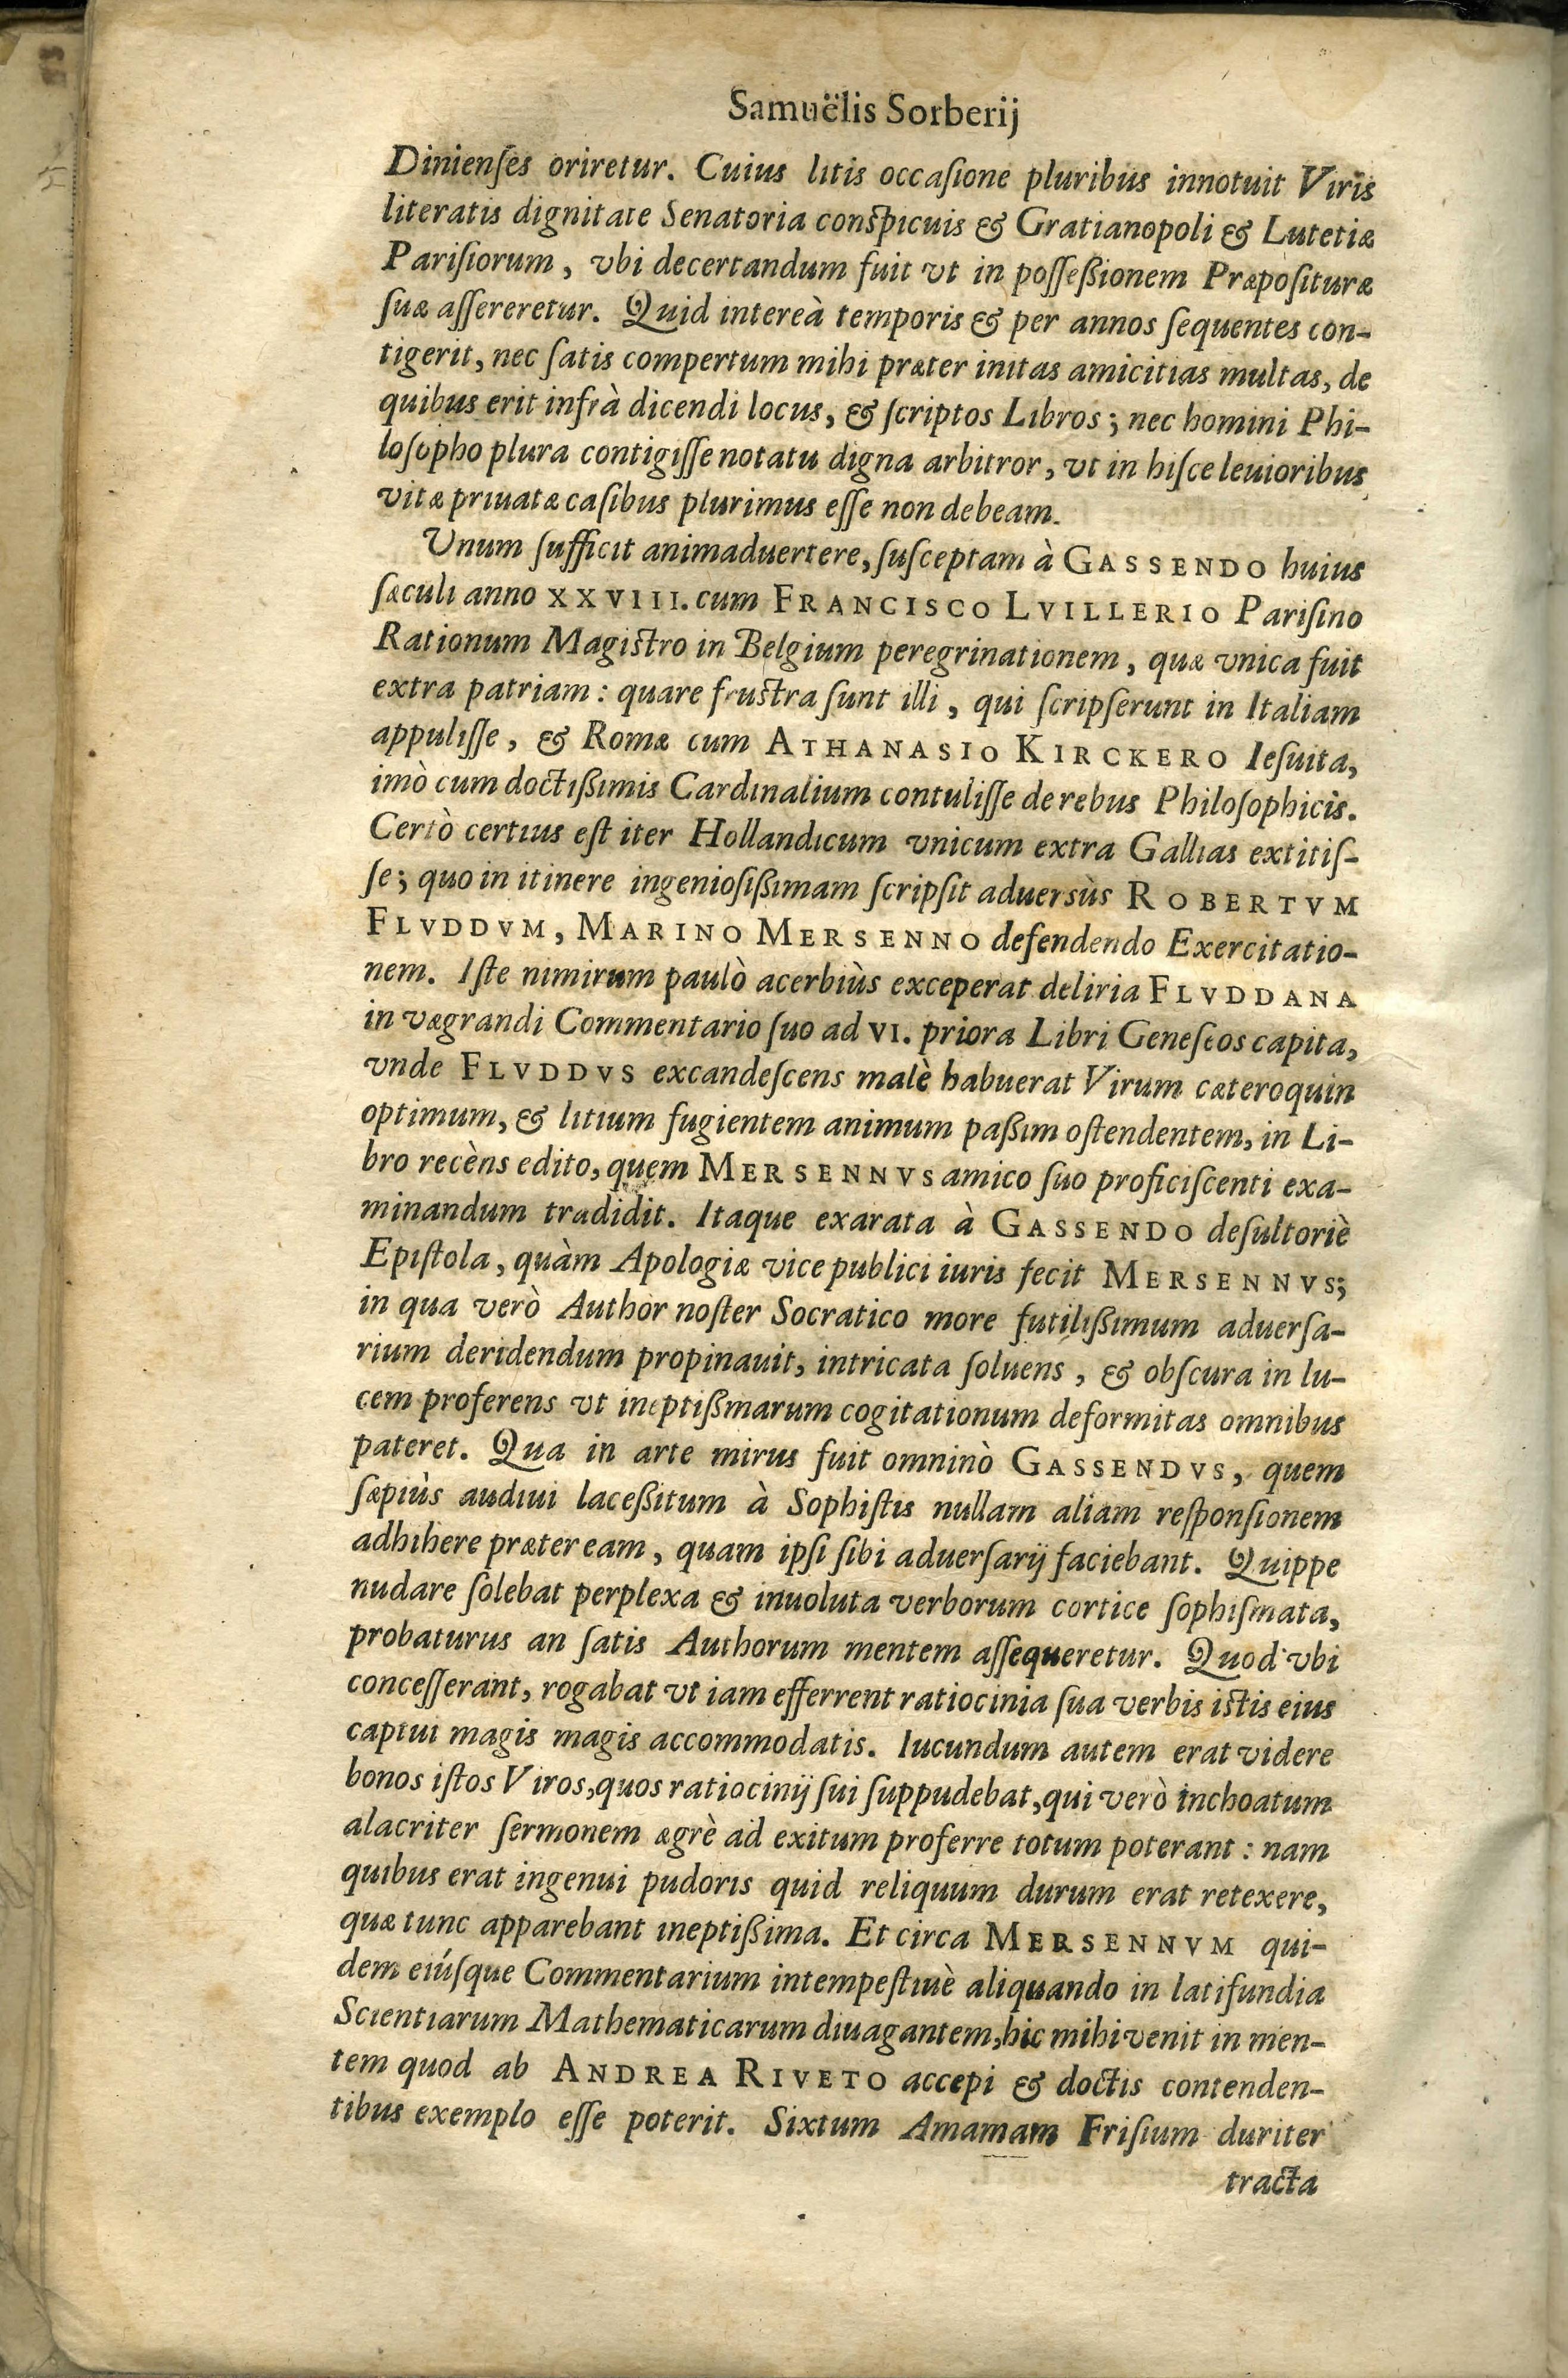 Samuëlis Sorberij
Dinienſes oriretur. Cuius litis occaſione pluribus innotuit Viris
literatis dignitate Senatoria conſpicuis & Gratianopoli & Lutetiæ
Pariſiorum, vbi decertandum fuit vt in poſſeßionem Præpoſituræ
ſuæ aſſereretur. Quid intereà temporis & per annos ſequentes con-
tigerit, nec ſatis compertum mihi præter initas amicitias multas, de
quibus erit infrà dicendi locus, & ſcriptos Libros; nec homini Phi-
loſopho plura contigiſſe notatu digna arbitror, vt in hiſce leuioribus
vitæ priuatæ caſibus plurimus eſſe non debeam.
Unum ſufficit animaduertere, ſuſceptam à GASSENDO huius
ſæculi anno XXVIII. cum FRANCISCO LVILLERIO Pariſino
Rationum Magiſtro in Belgium peregrinationem, quæ vnica fuit
extra patriam: quare fruſtra ſunt illi, qui ſcripſerunt in Italiam
appuliſſe, & Romæ cum ATHANASIO KIRCKERO Ieſuita,
imò cum doctißimis Cardinalium contuliſſe de rebus Philoſophicis.
Certò certius eſt iter Hollandicum vnicum extra Gallias extitiſ-
ſe; quo in itinere ingenioſißimam ſcripſit aduersùs ROBERTVM
FLVDDVM, MARINO MERSENNO defendendo Exercitatio-
nem. Iſte nimirum paulò acerbiùs exceperat deliria FLVDDANA
in vægrandi Commentario ſuo ad VI. priora Libri Geneſeos capita,
vnde FLVDDVS excandeſcens malè habuerat Virum cæteroquin
optimum, & litium fugientem animum paßim oſtendentem, in Li-
bro recèns edito, quem MERSENNVS amico ſuo proficiſcenti exa-
minandum tradidit. Itaque exarata à GASSENDO deſultoriè
Epiſtola, quàm Apologiæ vice publici iuris fecit MERSENNVS;
in qua verò Author noſter Socratico more futilißimum aduerſa-
rium deridendum propinauit, intricata ſoluens, & obſcura in lu-
cem proferens vt ineptißmarum cogitationum deformitas omnibus
pateret. Qua in arte mirus fuit omninò GASSENDVS, quem
ſæpiùs audiui laceßitum à Sophiſtis nullam aliam reſponſionem
adhihere præter eam, quam ipſi ſibi aduerſarij faciebant. Quippe
nudare ſolebat perplexa & inuoluta verborum cortice ſophiſmata,
probaturus an ſatis Authorum mentem aſſequeretur. Quod vbi
conceſſerant, rogabat vt iam efferrent ratiocinia ſua verbis iſtis eius
captui magis magis accommodatis. Iucundum autem erat videre
bonos iſtos Viros, quos ratiocinij ſui ſuppudebat, qui verò inchoatum
alacriter ſermonem ægrè ad exitum proferre totum poterant: nam
quibus erat ingenui pudoris quid reliquum durum erat retexere,
quæ tunc apparebant ineptißima. Et circa MERSENNVM qui-
dem eiúſque Commentarium intempeſtiuè aliquando in latifundia
Scientiarum Mathematicarum diuagantem, hic mihi venit in men-
tem quod ab ANDREA RIVETO accepi & doctis contenden-
tibus exemplo eſſe poterit. Sixtum Amamam Friſium duriter
tracta